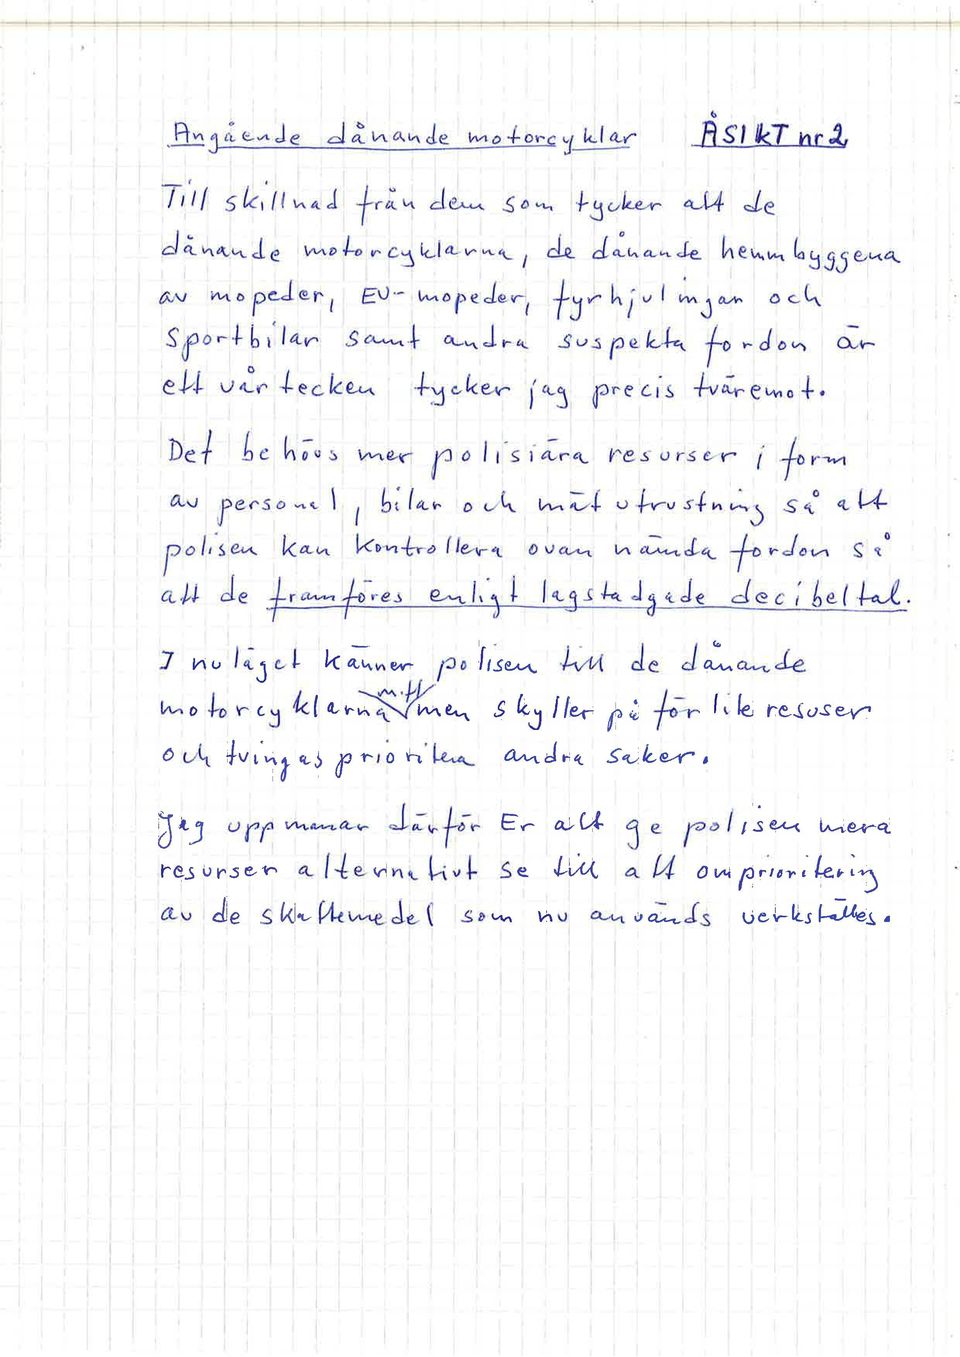 Angående dånande motorcyklar ÅSIKT nr 2
Till skillnad från dem som tycker att de
dånande motorcyklarna, de dånande hemmbyggena
av mopeder, EU-mopeder, fyrhjulingar och
Sportbilar samt andra suspekta fordon är
ett vårtecken tycker jag precis tväremot.
Det behövs mer polisiära resurser i form
av personal, bilar och mätutrustning så att
polisen kan kontrollera ovan nämda fordon så
att de framföres enligt lagstadgade decibeltal.
I nuläget känner polisen till de dånande
motorcyklarna men skyller på för lite resuser
och tvingas prioritera andra saker.
Jag uppmanar därför Er att ge polisen mera
resurser alternativt se till att omprioritering
av de skattemedel som nu används verkställes.